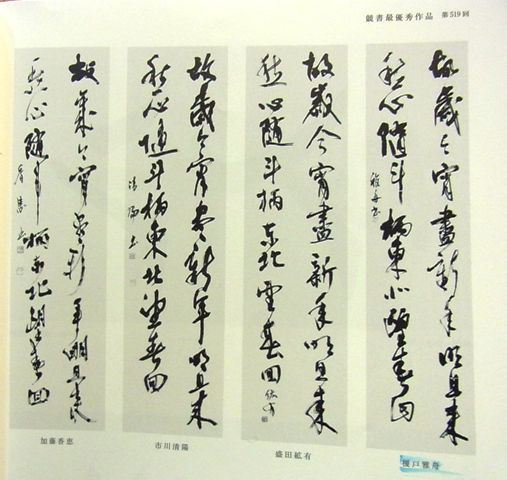 競書最優秀作品 第519回
故歳今宵盡新年明旦来
愁心隨斗柄東北望春回
雅舟書
榎戸雅舟
故歳今宵盡新年明旦来
愁心隨斗柄東北望春回 紘有
盛田紘有
故歳今宵盡新年明旦来
愁心隨斗柄東北望春回
清陽書
市川清陽
故歳今宵盡新年明旦来
愁心隨斗柄東北望春回
香恵書
加藤香恵